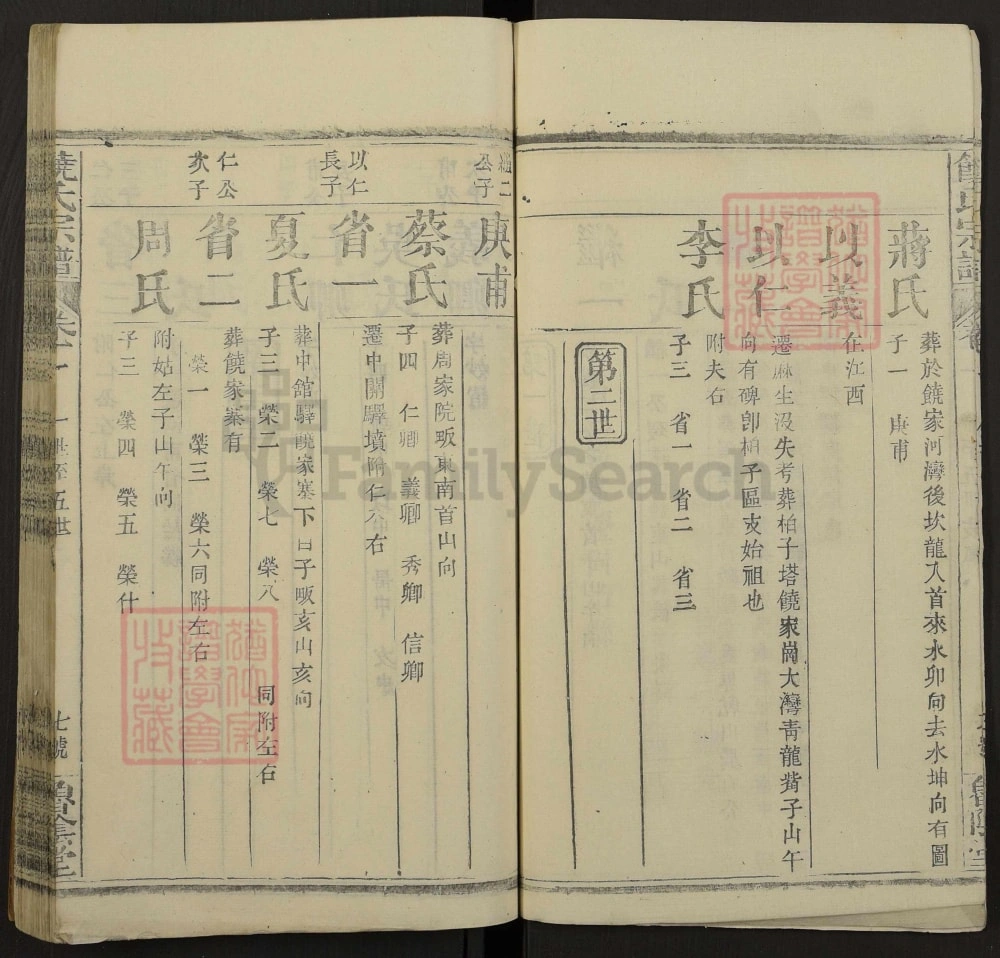 蔣氏
葬於饒家河灣後坎龍入首來水卯向去水坤向有圖
子一 庚甫
以義
在江西
以仁
遷麻生沒失考葬柏子塔饒家崗大灣青龍嘴子山午
向有碑卽柏子區支始祖也
李氏
附夫右
子三 省一 省二 省三
第二世
公子
庚甫
葬周家院畈東南首山向
蔡氏
子四 仁卿 義卿 秀卿 信卿
以仁
長子
省一
遷中關驛墳附仁公右
夏氏
葬中館驛饒家寨下 子畈亥山亥向
子三 榮二 榮七 榮八 同附左右
仁公
次子
省二
葬饒家寨有
榮一 榮三 榮六同附左右
周氏
附姑左子山午向
子三 榮四 榮五 榮什
饒氏宗譜
卷
一世至五世
七號
FamilySearch